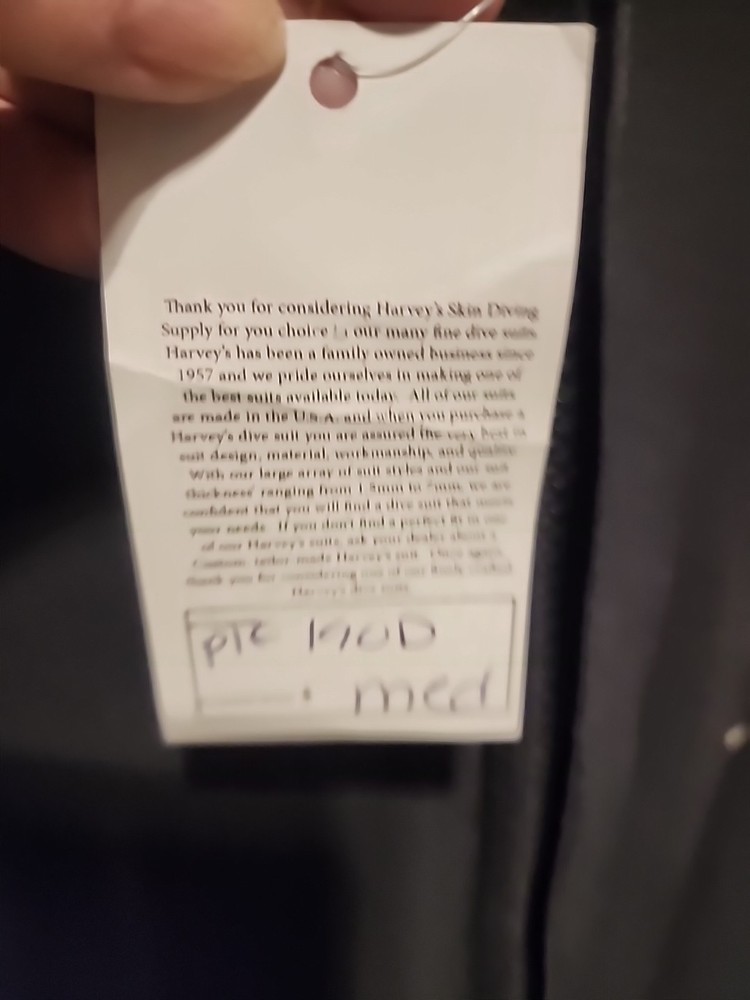 Thank you for considering Harvey's Skin Diving
Supply for you choice in our many fine dive suits.
Harvey's has been a family owned business since
1957 and we pride ourselves in making one of
the best suits available today. All of our suits
are made in the U.S.A. and when you purchase a
Harvey's dive suit you are assured the very best in
suit design, material, workmanship, and quality.
With our large array of suit styles and our suit
thickness ranging from 1.5mm to 7mm, we are
confident that you will find a dive suit that meets
your needs. If you don't find a perfect fit in one
of our Harvey's suits, ask your dealer about a
Custom tailor made Harvey's suit. Once again,
thank you for considering one of our finely crafted
Harvey's dive suits.
med